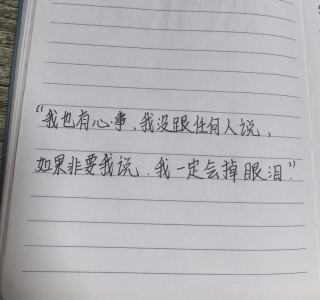 “我也有心事，我没跟任何人说，
如果非要我说，我一定会掉眼泪”